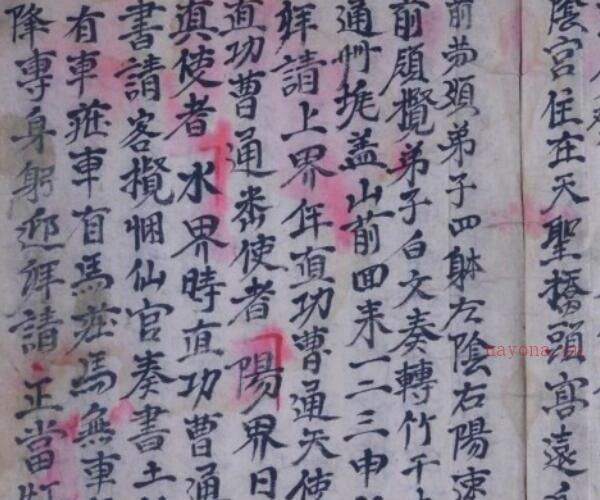 陰宮住在天聖橋頭宮遠
前劳須弟子四躰左陰右陽速
前頋攬弟子白文奏轉竹千
通州批盖山前回来一二三申
拜請上界年直功曹通天使
直功曹通番使者 陽界日
真使者 水界時直功曹通
書請客攬悃仙官奏書土
有車莊車有馬庄馬無車
降專身躬迎拜請 正當
nayona.cn